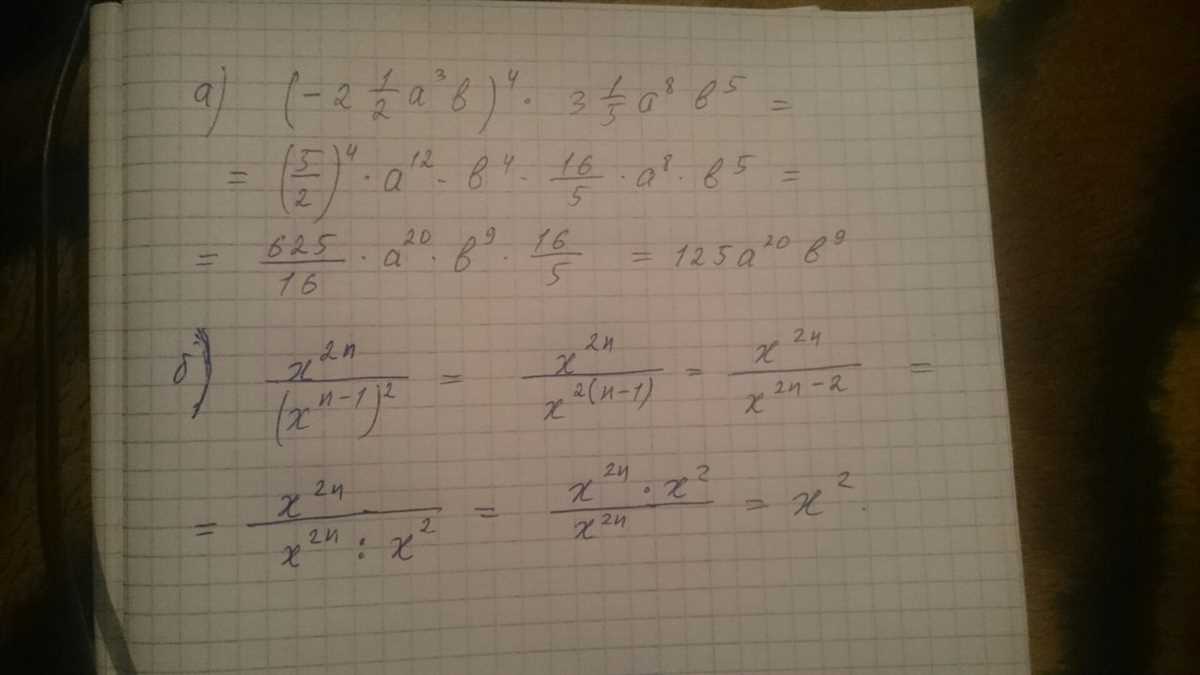 а) (-2 1/2 a³ в)⁴ · 3 1/5 a⁸ в⁵ =
= (5/2)⁴ · a¹² · в⁴ · 16/5 · a⁸ · в⁵ =
= 625/16 · a²⁰ · в⁹ · 16/5 = 125 a²⁰ в⁹
б) x²ⁿ/(xⁿ⁻¹)² = x²ⁿ/x²⁽ⁿ⁻¹⁾ = x²ⁿ/x²ⁿ⁻² =
= x²ⁿ/(x²ⁿ : x²) = (x²ⁿ · x²)/x²ⁿ = x².